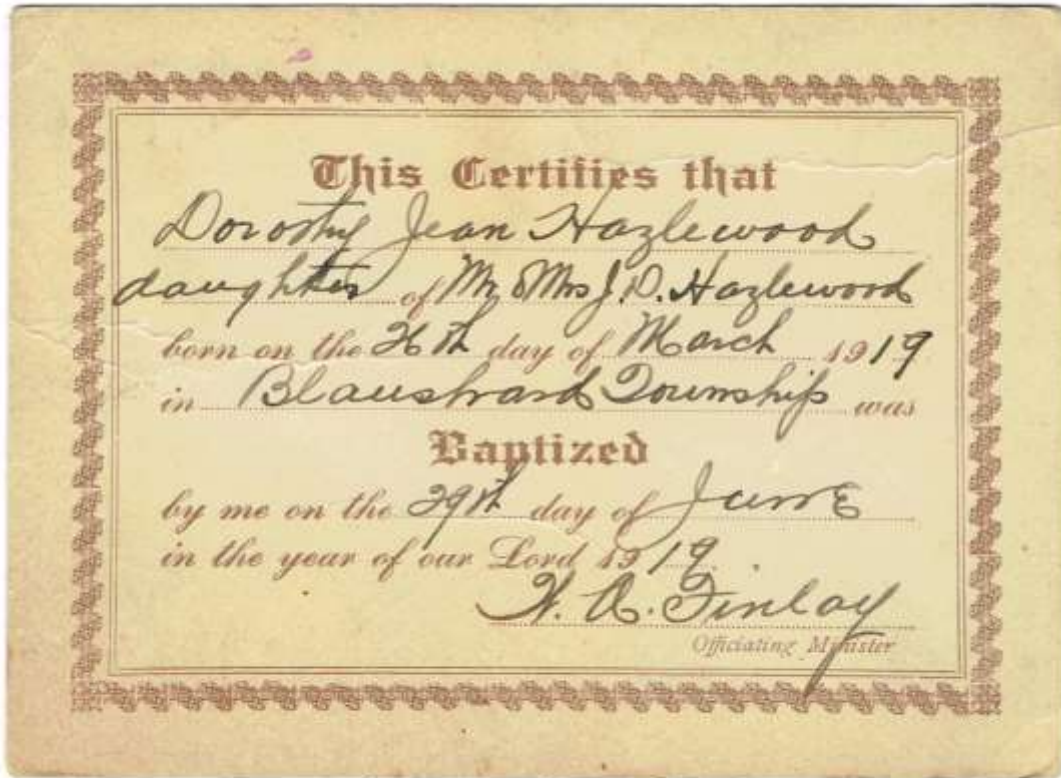 This Certifies that
Dorothy Jean Hazlewood
daughter of Mr & Mrs J. D. Hazlewood
born on the 26th day of March 1919
in Township was
Baptized
by me on the 29th day of June
in the year of our Lord 1919
Finlay
Officiating Minister